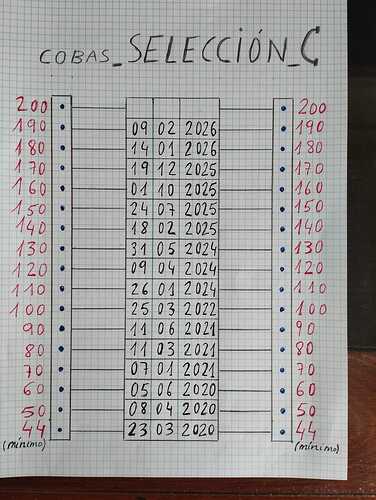 COBAS_SELECCIÓN_C
200 200
190 09 02 2026 190
180 14 01 2026 180
170 19 12 2025 170
160 01 10 2025 160
150 24 07 2025 150
140 18 02 2025 140
130 31 05 2024 130
120 09 04 2024 120
110 26 01 2024 110
100 25 03 2022 100
90 11 06 2021 90
80 11 03 2021 80
70 07 01 2021 70
60 05 06 2020 60
50 08 04 2020 50
44 23 03 2020 44
(mínimo) (mínimo)